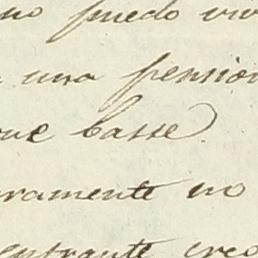 no puedo viv
una pension
que basse.
ramente no
entrante creo